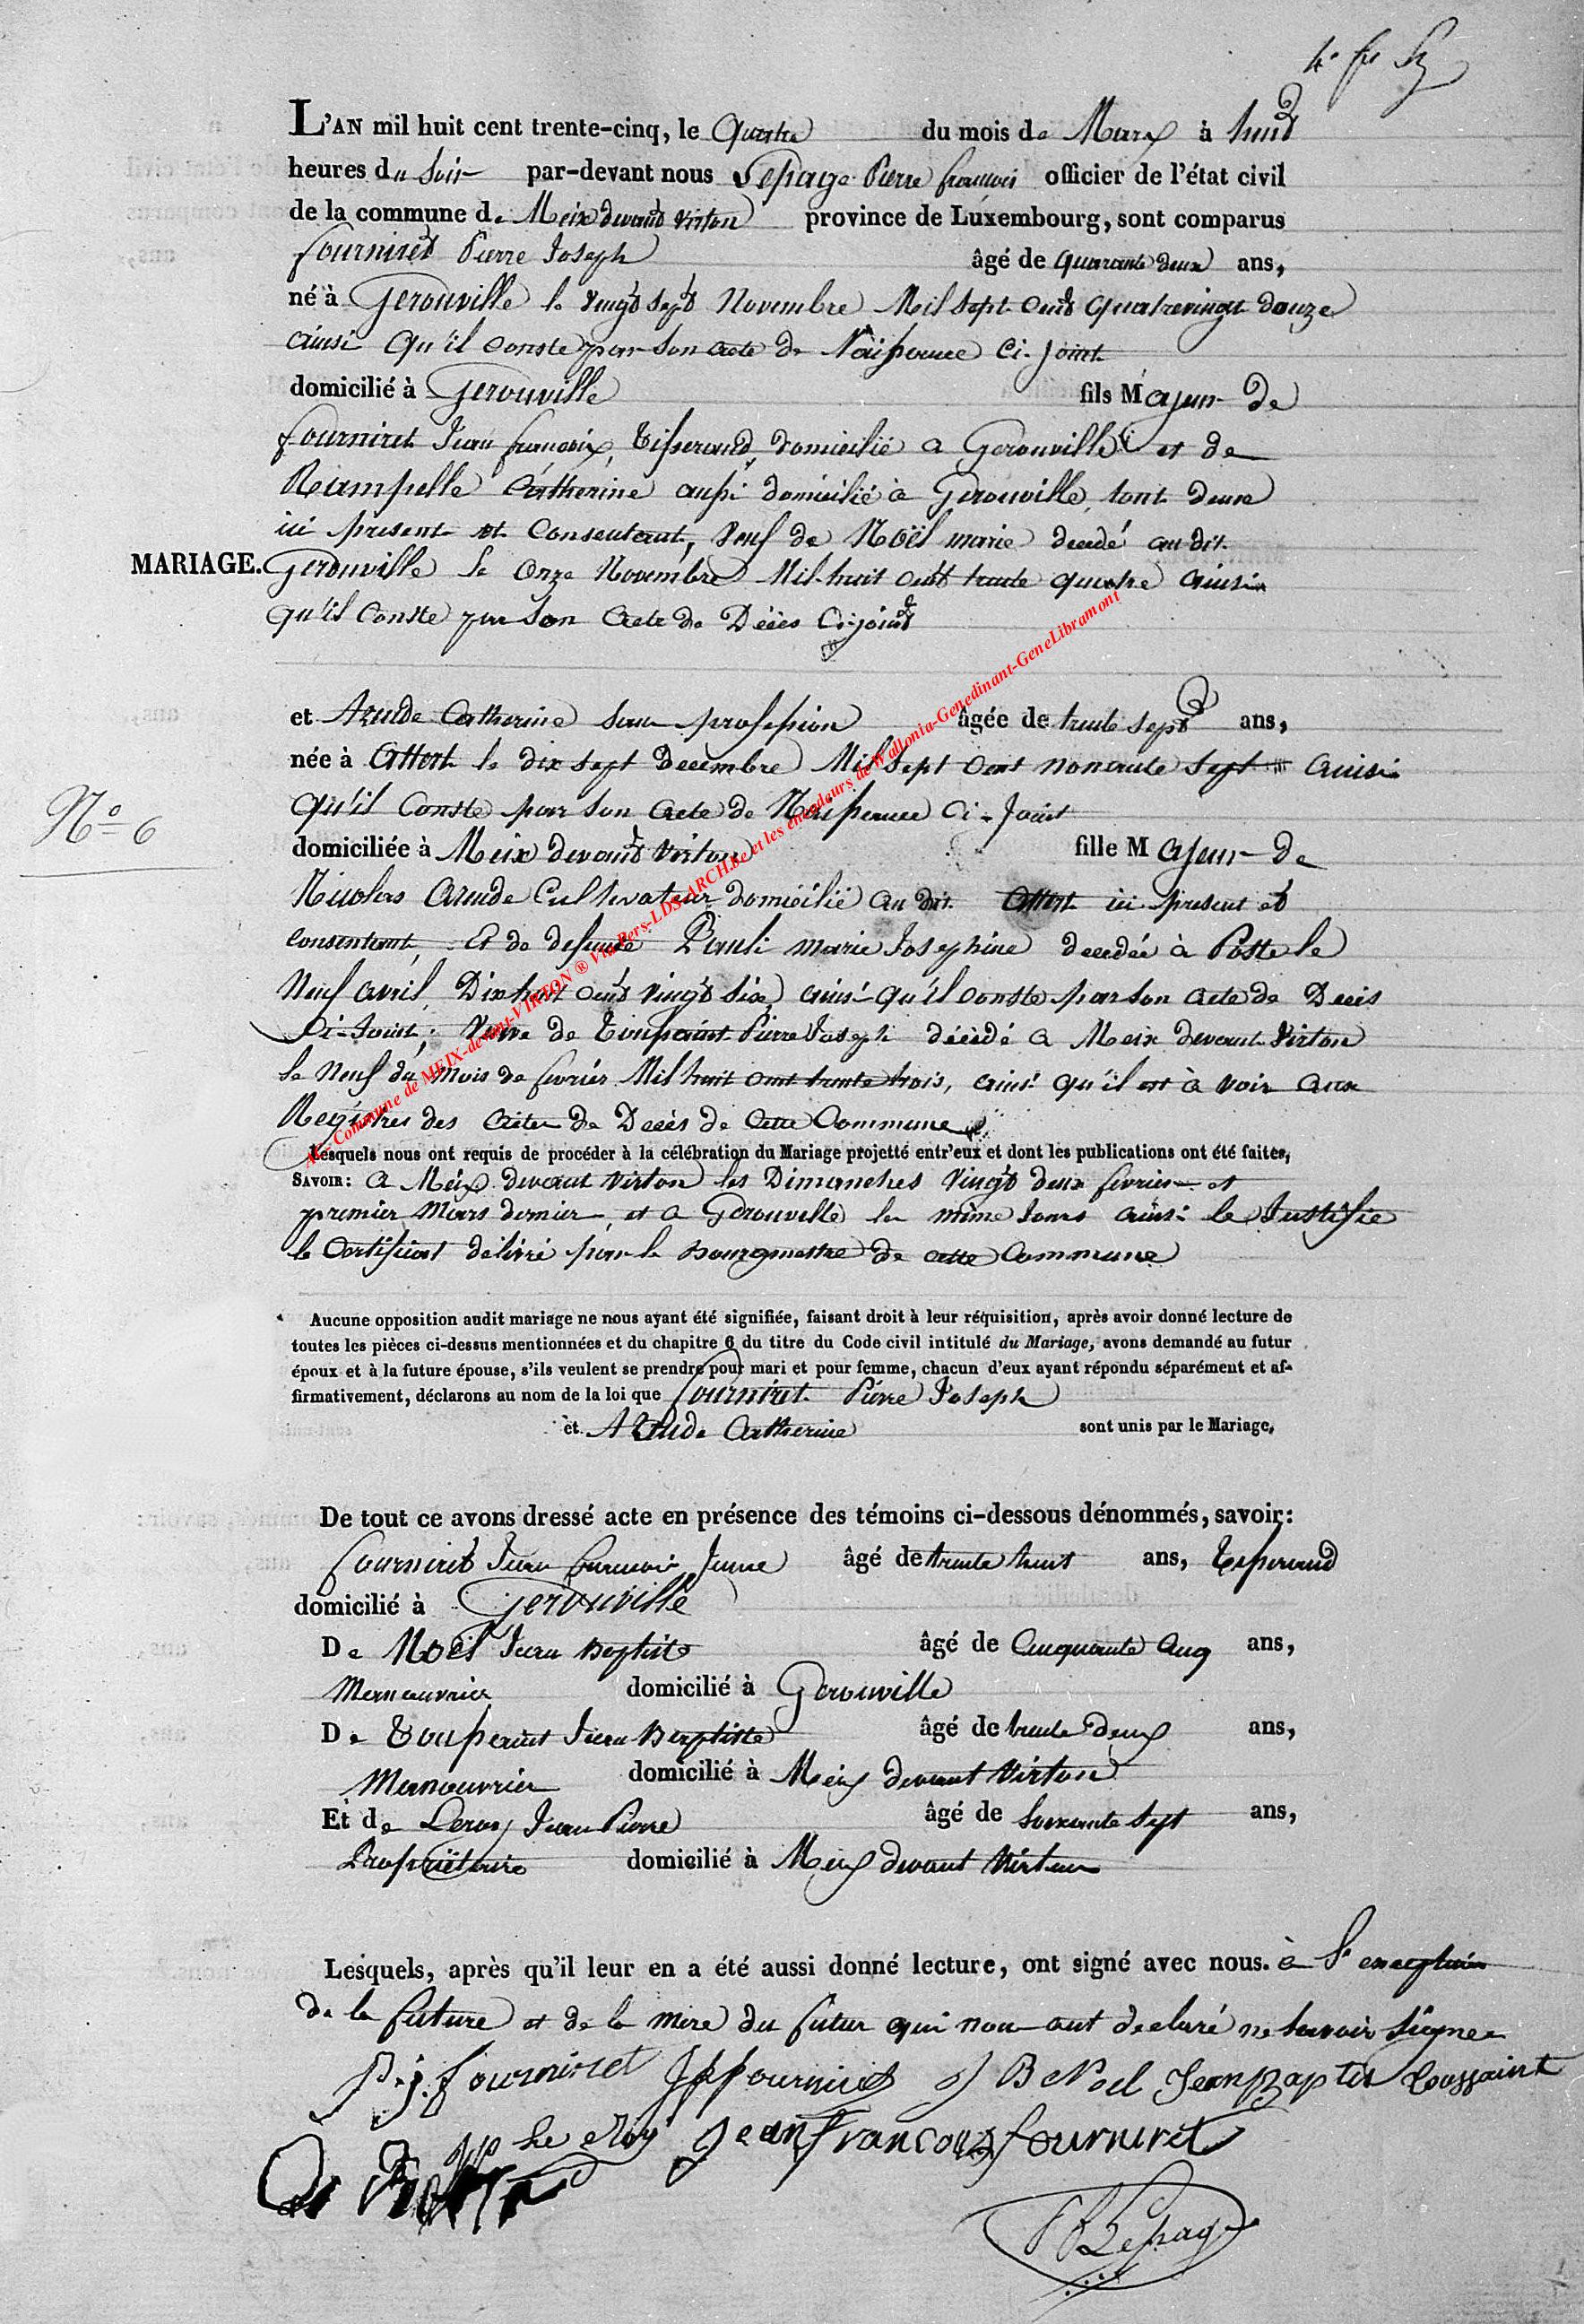 L'AN mil huit cent trente-cinq, le Quatre du mois de Mars à huit
heures du Soir par-devant nous Lepage Pierre francois officier de l'état civil
de la commune de Meix devant Virton province de Luxembourg, sont comparus
fourniret Pierre Joseph âgé de quarante deux ans,
né à Gerouville le vingt sept Novembre Mil Sept Cent quatrevingt douze
ainsi qu'il Conste par Son acte de Naissance Ci-Joint
domicilié à Gerouville fils Majeur de
fourniret Jean françois, tisserand, domicilié a Gerouville et de
Rampelle Catherine aussi domicilié à Gerouville, tout deux
ici present et Consentant, Veuf de Noël marie decedé au dit
MARIAGE. Gerouville Le Onze Novembre Mil-huit Cent trente quatre ainsi
qu'il Conste par Son acte de Décès Ci-joint
et Arude Catherine Sans profession âgée de trente Sept ans,
née à Attert le dix sept Decembre Mil Sept Cent nonante Sept ainsi
qu'il Conste par Son acte de Naissance Ci-Joint
N° 6
domiciliée à Meix devant Virton fille Majeur de
Nicolas Arude Cultivateur domicilié au dit Attert ici present et
Consentant, Et de defunte Pauli marie Josephine decedée à Post le
Neuf avril Dix huit Cent Vingt Six, ainsi qu'il Conste par Son acte de Décès
Ci-Joint; Veuve de Toussaint Pierre Joseph décédé a Meix devant Virton
le Neuf du Mois de fevrier Mil huit cent trente trois, ainsi qu'il est à voir aux
Registres des Actes de Décès de Cette Commune
Lesquels nous ont requis de procéder à la célébration du Mariage projetté entr'eux et dont les publications ont été faites,
SAVOIR: a Meix devant Virton les Dimanches Vingt deux fevrier et
premier Mars dernier, et a Gerouville les même Jours ainsi le Justifie
le Certificat délivré par le Bourgmestre de cette Commune
Aucune opposition audit mariage ne nous ayant été signifiée, faisant droit à leur réquisition, après avoir donné lecture de
toutes les pièces ci-dessus mentionnées et du chapitre 6 du titre du Code civil intitulé du Mariage, avons demandé au futur
époux et à la future épouse, s'ils veulent se prendre pour mari et pour femme, chacun d'eux ayant répondu séparément et af-
firmativement, déclarons au nom de la loi que fourniret Pierre Joseph
et Arude Catherine sont unis par le Mariage.
De tout ce avons dressé acte en présence des témoins ci-dessous dénommés, savoir:
fourniret Jean francois Jeune âgé de trente huit ans, Tisserand
domicilié à Gerouville
De Noël Jean Baptiste âgé de Cinquante Cinq ans,
Manouvrier domicilié à Gerouville
De Toussaint Jean Baptiste âgé de trente Deux ans,
Manouvrier domicilié à Meix devant Virton
Et de Leroy Jean Pierre âgé de Soixante Sept ans,
Propriétaire domicilié à Meix devant Virton
Lesquels, après qu'il leur en a été aussi donné lecture, ont signé avec nous. à L'exception
de la future et de la mere du futur qui nous ont declaré ne Savoir Signer
p.j. fourniret JfFourniret J B Noel Jean Baptis toussaint
jp Le roy Jean francois fourniret
PFLepage
AC - Commune de MEIX-devant-VIRTON ® Via Pers-LDS-ARCH.be et les encodeurs de Wallonia-Genedinant-GeneLibramont